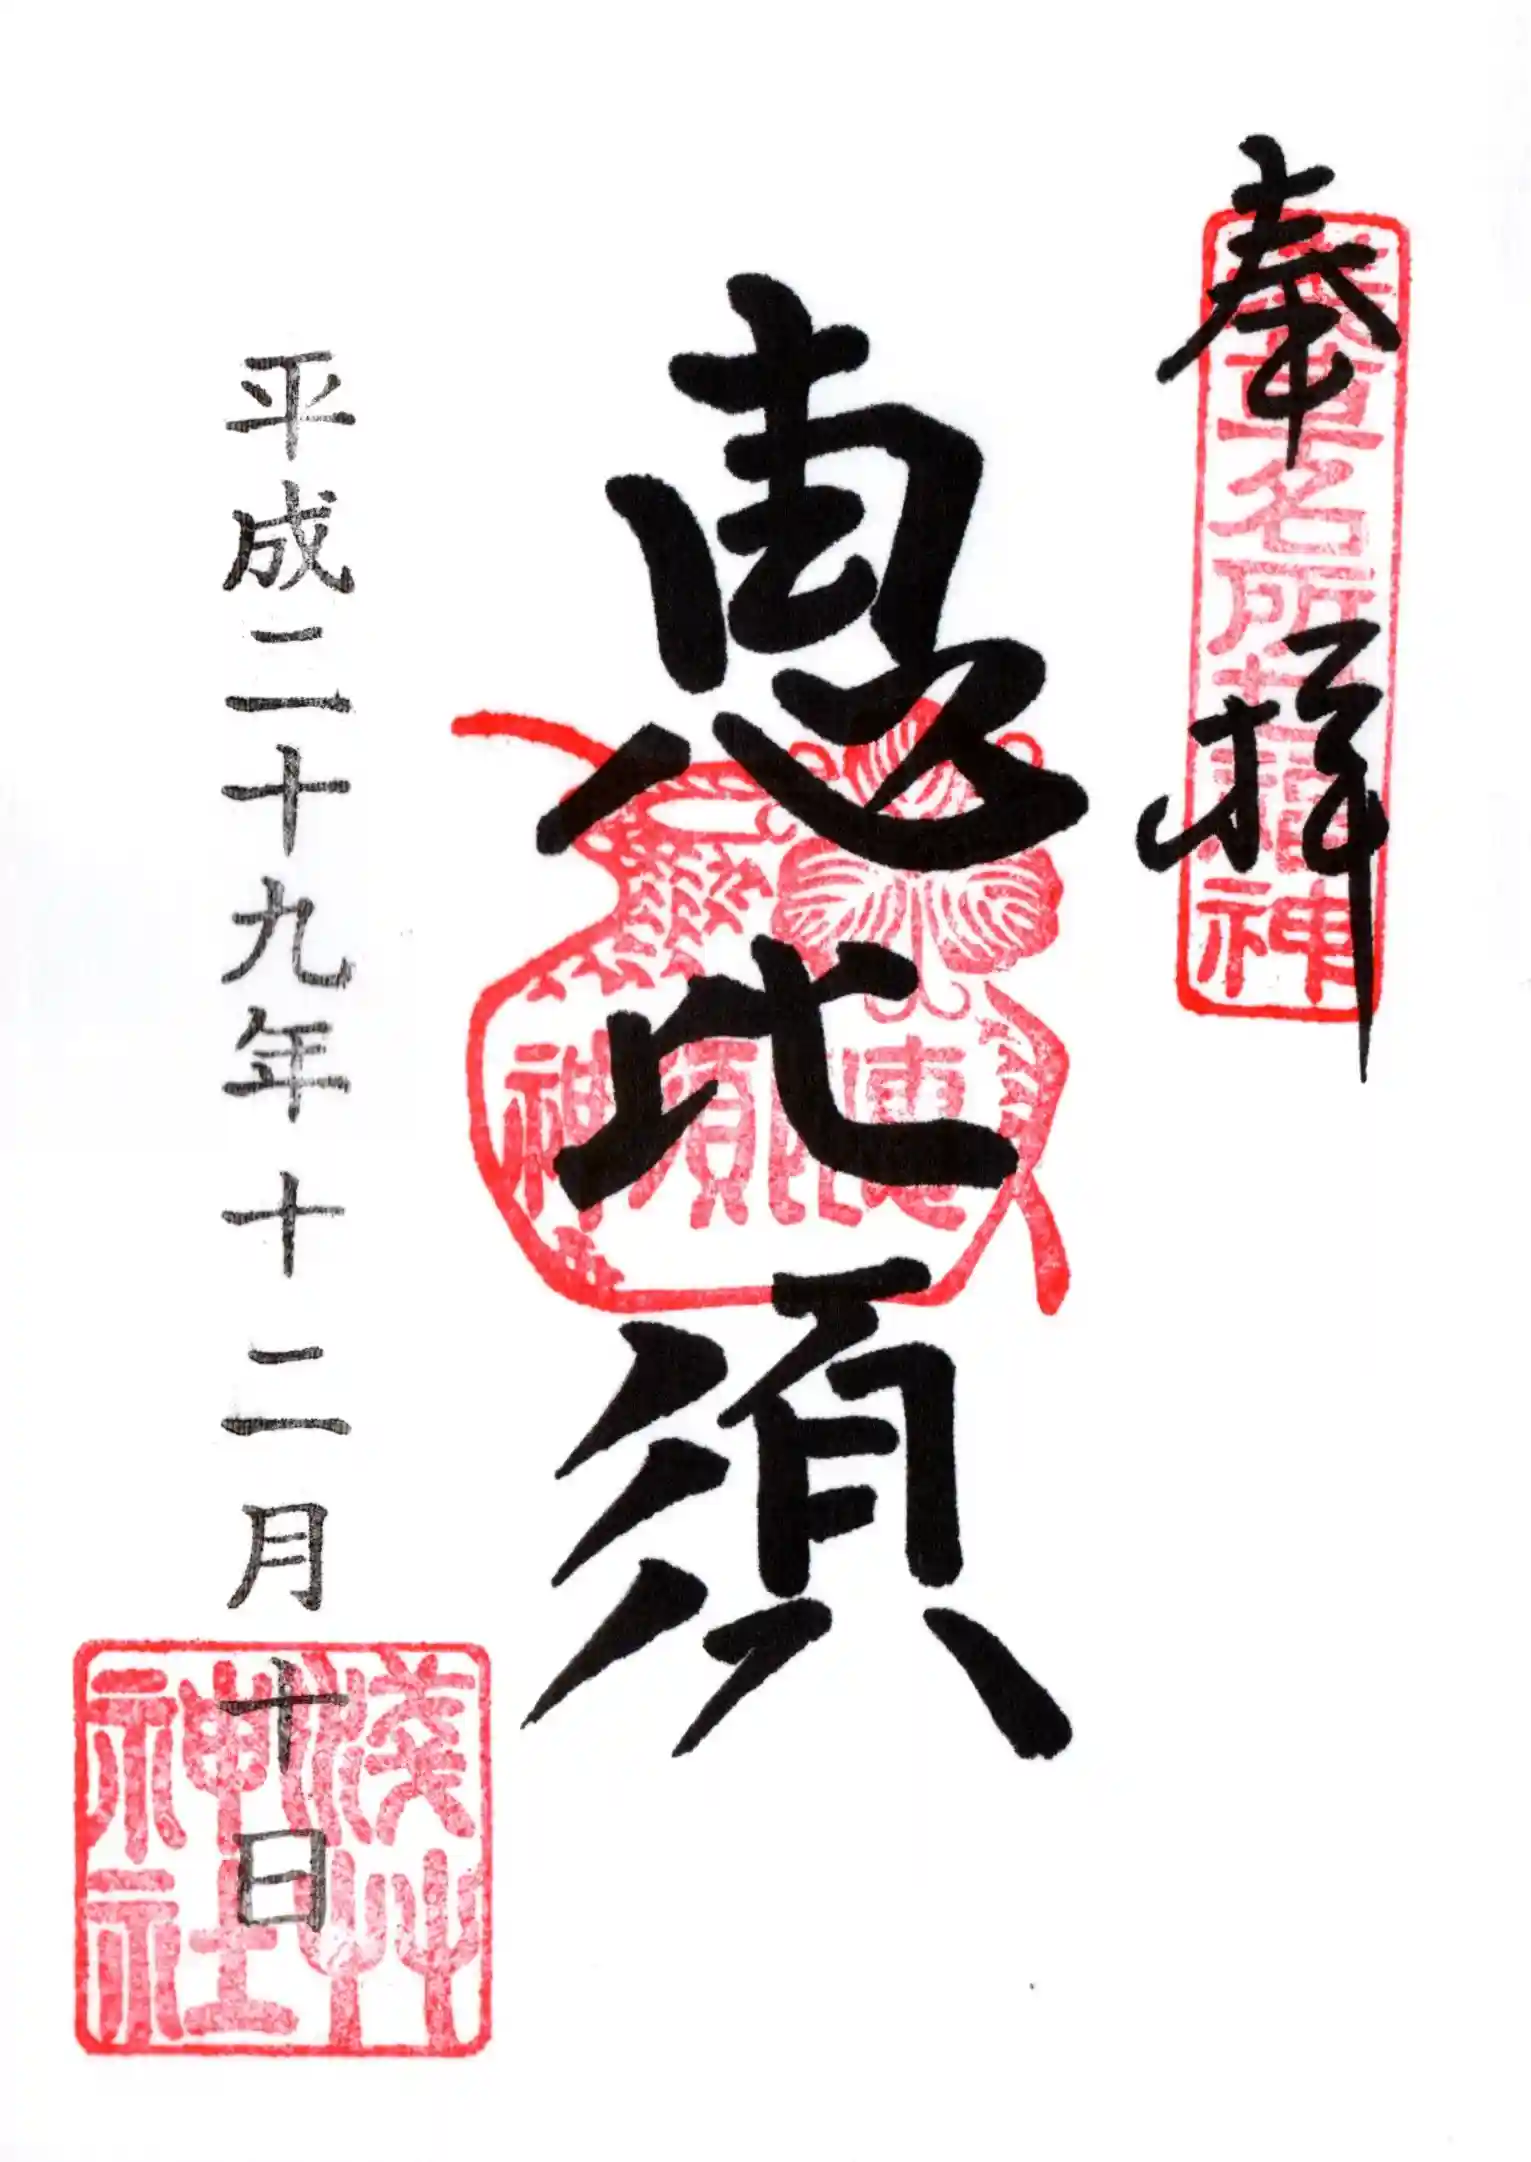 奉拝
浅草名所七福神
恵比須
恵比須神
平成二十九年十二月十日
浅草神社